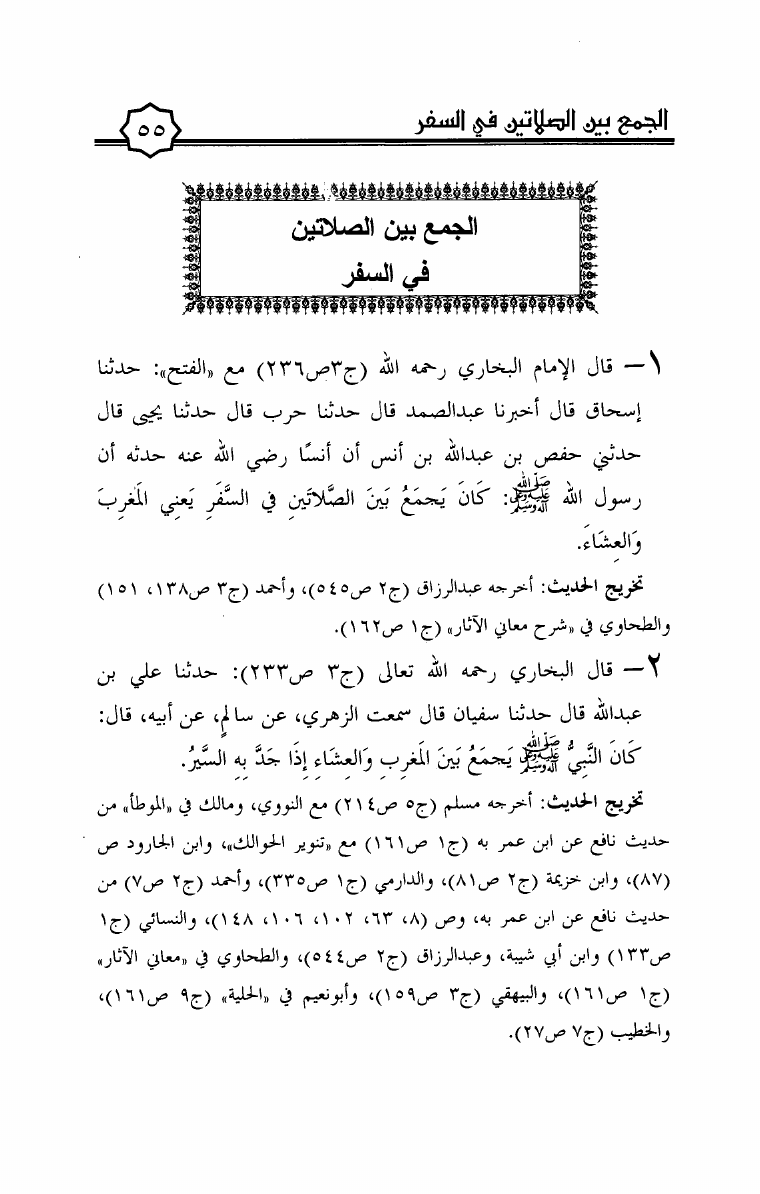 الجمع بين الصلاتين في السفر
٥٥
الجمع بين الصلاتين
في السفر
١— قال الإمام البخاري رحمه الله (ج٣ص٢٣٦) مع «الفتح»: حدثنا
إسحاق قال أخبرنا عبدالصمد قال حدثنا حرب قال حدثنا يحيى قال
حدثني حفص بن عبدالله بن أنس أن أنسًا رضي الله عنه حدثه أن
رسول الله ﷺ: كَانَ يَجمَعُ بَينَ الصَّلاَتَينِ فِي السَّفَرِ يَعنِي المَغرِبَ
وَالعِشَاءَ.
تخريج الحديث: أخرجه عبدالرزاق (ج٢ ص٥٤٥)، وأحمد (ج٣ ص١٣٨، ١٥١)
والطحاوي في «شرح معاني الآثار» (ج١ ص١٦٢).
٢— قال البخاري رحمه الله تعالى (ج٣ ص٢٣٣): حدثنا علي بن
عبدالله قال حدثنا سفيان قال سمعت الزهري، عن سالمٍ، عن أبيه، قال:
كَانَ النَّبِيُّ ﷺ يَجمَعُ بَينَ المَغرِبِ وَالعِشَاءِ إِذَا جَدَّ بِهِ السَّيرُ.
تخريج الحديث: أخرجه مسلم (ج٥ ص٢١٤) مع النووي، ومالك في «الموطأ» من
حديث نافع عن ابن عمر به (ج١ ص١٦١) مع «تنوير الحوالك»، وابن الجارود ص
(٨٧)، وابن خزيمة (ج٢ ص٨١)، والدارمي (ج١ ص٣٣٥)، وأحمد (ج٢ ص٧) من
حديث نافع عن ابن عمر به، وص (٨، ٦٣، ١٠٢، ١٠٦، ١٤٨)، والنسائي (ج١
ص١٣٣) وابن أبي شيبة، وعبدالرزاق (ج٢ ص٥٤٤)، والطحاوي في «معاني الآثار»
(ج١ ص١٦١)، والبيهقي (ج٣ ص١٥٩)، وأبونعيم في «الحلية» (ج٩ ص١٦١)،
والخطيب (ج٧ ص٢٧).